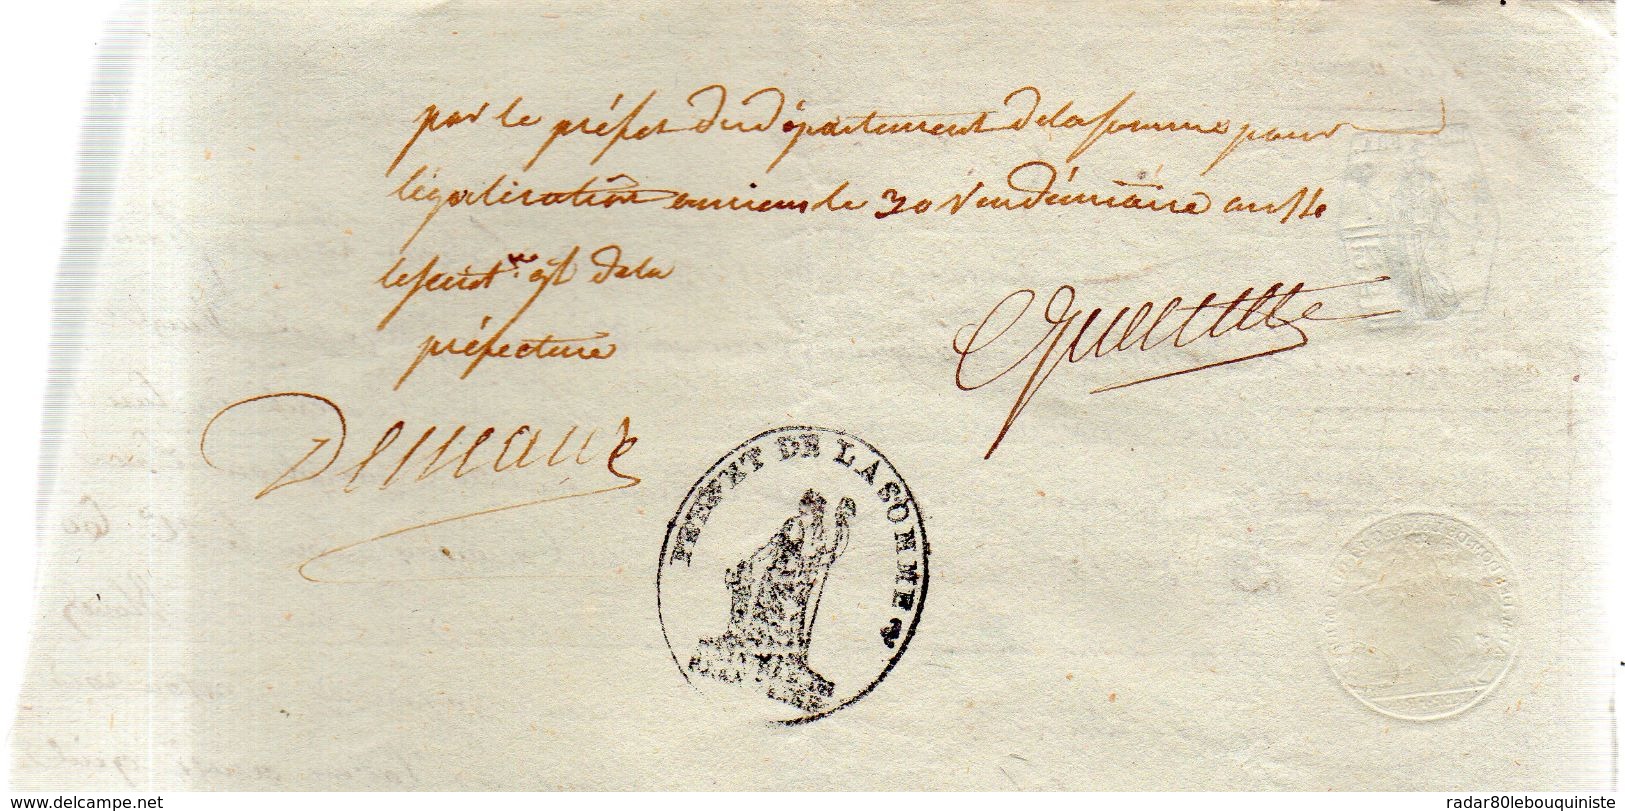 par le préfet du département de la somme pour
légalisation amiens le 30 Vendémiaire an
le secret.re g.l de la
préfecture
Demaux
PREFET DE LA SOMME
www.delcampe.net
radar80lebouquiniste